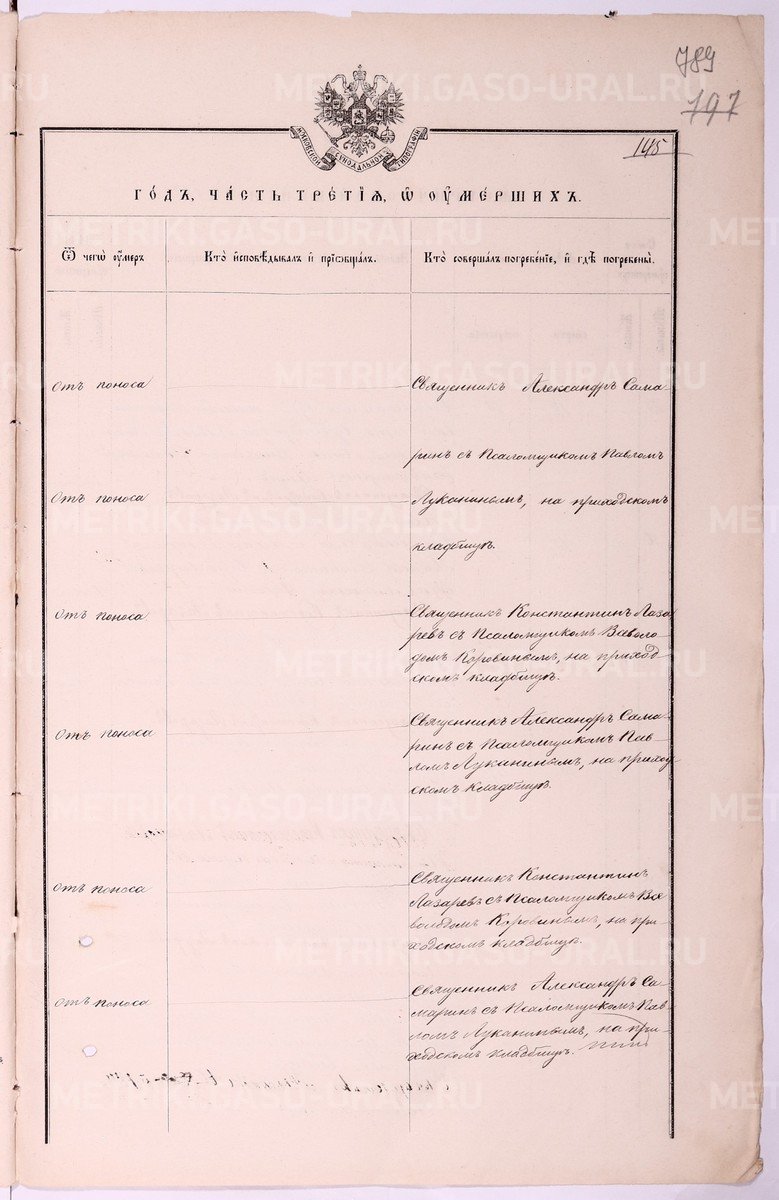 789
197
145
МОСКОВСКОЙ СУНОДАЛЬНОЙ ТИПОГРАФІИ
ГО́ДЪ, ЧА́СТЬ ТРЕ́ТІѦ, Ѡ҆ ОУ҆МЕ́РШИХЪ.
Ѿ чегѡ̀ оу҆́меръ
Кто̀ и҆сповѣ́дывалъ и҆ прїѡбща́лъ.
Кто̀ соверша́лъ погребе́нїе, и҆ гдѣ̀ погребены̀.
Отъ поноса
Священникъ Александръ Сама
ринъ съ Псаломщикомъ Павломъ
Отъ поноса
Луканинымъ, на приходскомъ
кладбищѣ.
Отъ поноса
Священникъ Константинъ Лаза
ревъ съ Псаломщикомъ Всеволо-
домъ Коровинымъ, на приход-
скомъ кладбищѣ.
Отъ поноса
Священникъ Александръ Сама-
ринъ съ Псаломщикомъ Пав-
ломъ Луканинымъ, на приход
скомъ кладбищѣ.
Отъ поноса
Священникъ Константинъ
Лазаревъ съ Псаломщикомъ Все
володомъ Коровинымъ, на при-
ходскомъ кладбищѣ.
Отъ поноса
Священникъ Александръ Са-
маринъ съ Псаломщикомъ Пав-
ломъ Луканинымъ, на при-
ходскомъ кладбищѣ.
METRIKI.GASO-URAL.RU